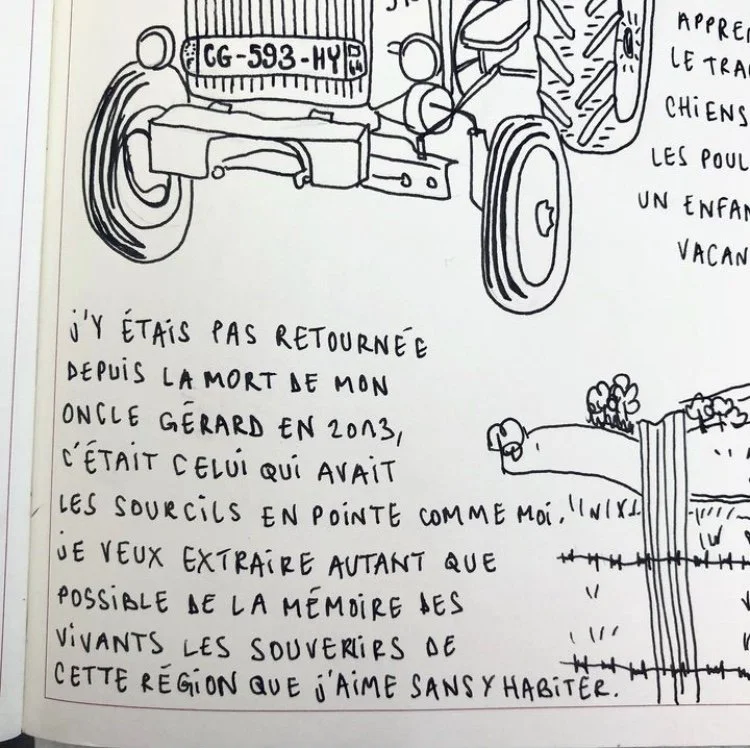 CG-593-HY
F
44
APPRE
LE TRA
CHIENS
LES POUL
UN ENFAN
VACAN
J'Y ÉTAIS PAS RETOURNÉE
DEPUIS LA MORT DE MON
ONCLE GÉRARD EN 2013,
C'ÉTAIT CELUI QUI AVAIT
LES SOURCILS EN POINTE COMME MOI.
JE VEUX EXTRAIRE AUTANT QUE
POSSIBLE DE LA MÉMOIRE DES
VIVANTS LES SOUVENIRS DE
CETTE RÉGION QUE J'AIME SANS Y HABITER.